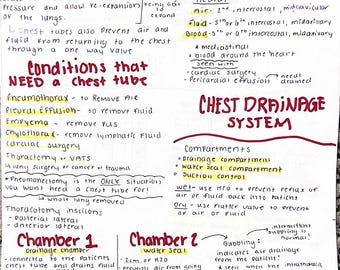 pressure and allow re-expansion
of the lungs.
being able to
expand
Chest tubes also prevent air and
fluid from returning to the chest
through a one way valve
Conditions that
NEED a chest tube
Pneumothorax - to remove Air
Pleural Effusion - to remove fluid
Empyema - remove pus
Chylothorax - remove lymphatic fluid
Cardiac surgery
Thoractomy or VATS
lung surgery or cancer or trauma
*Pneumonectomy is the ONLY situation
you won't need a chest tube for!
whole lung removed
Thoracotomy insicions
- posterior lateral
- anterior lateral
Chamber 1
drainage chamber
- connected to the patients
chest tube and drains fluid
Air - 2nd intercostal, midclavicular
Fluid - 5th or 6th intercostal, midaxillary
Blood - 5th or 6th intercostal, midaxillary
* mediastinal
- blood around the heart
seen with
- cardiac surgery
- Pericardial effusion
needs
drained
CHEST DRAINAGE
SYSTEM
Compartments
- Drainage compartment
- water seal compartment
- suction control
wet - use H2O to prevent reflux of
air or fluid back into patients
Dry - use flutter valve to prevent
air or fluid
Chamber 2
water seal
- 2cm of H2O
- prevents air from going
intermittent
bubbling is
normal!
Bubbling:
indicates air drainage
from the patient
* seen when the intrathoracic